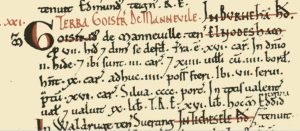 tenuit Edmund' tegn' R.E.
XXI. TERRA GOISFR DE MANNEVILE. In BURNEHA HD.
Goisfrid' de Mannevile ten ELTESHA
VII. hid' 7 dim' se defd'. Tra. e. XVI. car'. In dnio
II. hide. 7 ibi sunt. III. car'. 7 XVIII. uilli cu. IIII. bord'
hnt. IX. car' adhuc. IIII. poss' fieri. Ibi. VII. serui
ptu. XVI. car'. Silua. porc'. In totis ualent'
uat 7 ualuit. X. lib. T.R.E. XVI. lib. hoc Eddid
In Waldruge ten Suerting In